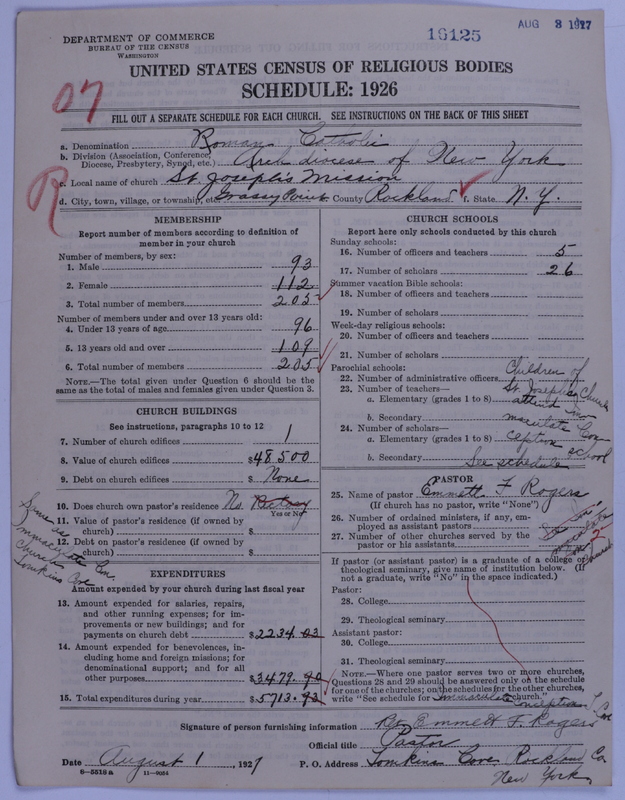 DEPARTMENT OF COMMERCE
BUREAU OF THE CENSUS
WASHINGTON
19125
AUG 3 1927
UNITED STATES CENSUS OF RELIGIOUS BODIES
SCHEDULE: 1926
07
FILL OUT A SEPARATE SCHEDULE FOR EACH CHURCH. SEE INSTRUCTIONS ON THE BACK OF THIS SHEET
R
a. Denomination Roman Catholic
b. Division (Association, Conference, Diocese, Presbytery, Synod, etc.) Arch diocese of New York
c. Local name of church St Joseph's Mission
d. City, town, village, or township, etc. Grassy Point County Rockland f. State N. Y.
MEMBERSHIP
Report number of members according to definition of
member in your church
Number of members, by sex:
1. Male 93
2. Female 112
3. Total number of members 205
Number of members under and over 13 years old:
4. Under 13 years of age 96
5. 13 years old and over 109
6. Total number of members 205
NOTE.—The total given under Question 6 should be the
same as the total of males and females given under Question 3.
CHURCH BUILDINGS
See instructions, paragraphs 10 to 12
7. Number of church edifices 1
8. Value of church edifices $48500
9. Debt on church edifices $ None
10. Does church own pastor's residence No.
Yes or No
11. Value of pastor's residence (if owned by
church) $
12. Debt on pastor's residence (if owned by
church) $
Same as
Immaculate Con.
Church
Tomkins Cove
EXPENDITURES
Amount expended by your church during last fiscal year
13. Amount expended for salaries, repairs,
and other running expenses; for im-
provements or new buildings; and for
payments on church debt $2234.03
14. Amount expended for benevolences, in-
cluding home and foreign missions; for
denominational support; and for all
other purposes $3479.90
15. Total expenditures during year $5713.93
CHURCH SCHOOLS
Report here only schools conducted by this church
Sunday schools:
16. Number of officers and teachers 5
17. Number of scholars 26
Summer vacation Bible schools:
18. Number of officers and teachers
19. Number of scholars
Week-day religious schools:
20. Number of officers and teachers
21. Number of scholars
Parochial schools:
22. Number of administrative officers
23. Number of teachers—
a. Elementary (grades 1 to 8)
b. Secondary
24. Number of scholars—
a. Elementary (grades 1 to 8)
b. Secondary
Children of
St. Josephs Church
attend Im
maculate Con
ception school
See schedule
PASTOR
25. Name of pastor Emmett F Rogers
(If church has no pastor, write "None")
26. Number of ordained ministers, if any, em-
ployed as assistant pastors
27. Number of other churches served by the
pastor or his assistants 2
If pastor (or assistant pastor) is a graduate of a college or
theological seminary, give name of institution below. (If
not a graduate, write "No" in the space indicated.)
Pastor:
28. College
29. Theological seminary
Assistant pastor:
30. College
31. Theological seminary
NOTE.—Where one pastor serves two or more churches,
Questions 28 and 29 should be answered only on the schedule
for one of the churches; on the schedules for the other churches,
write "See schedule for Immaculate Conception church."
Signature of person furnishing information Rev. Emmett F. Rogers
Official title Pastor
Date August 1, 1927 P. O. Address Tomkins Cove, Rockland Co
New York
8-5518a 11-9064